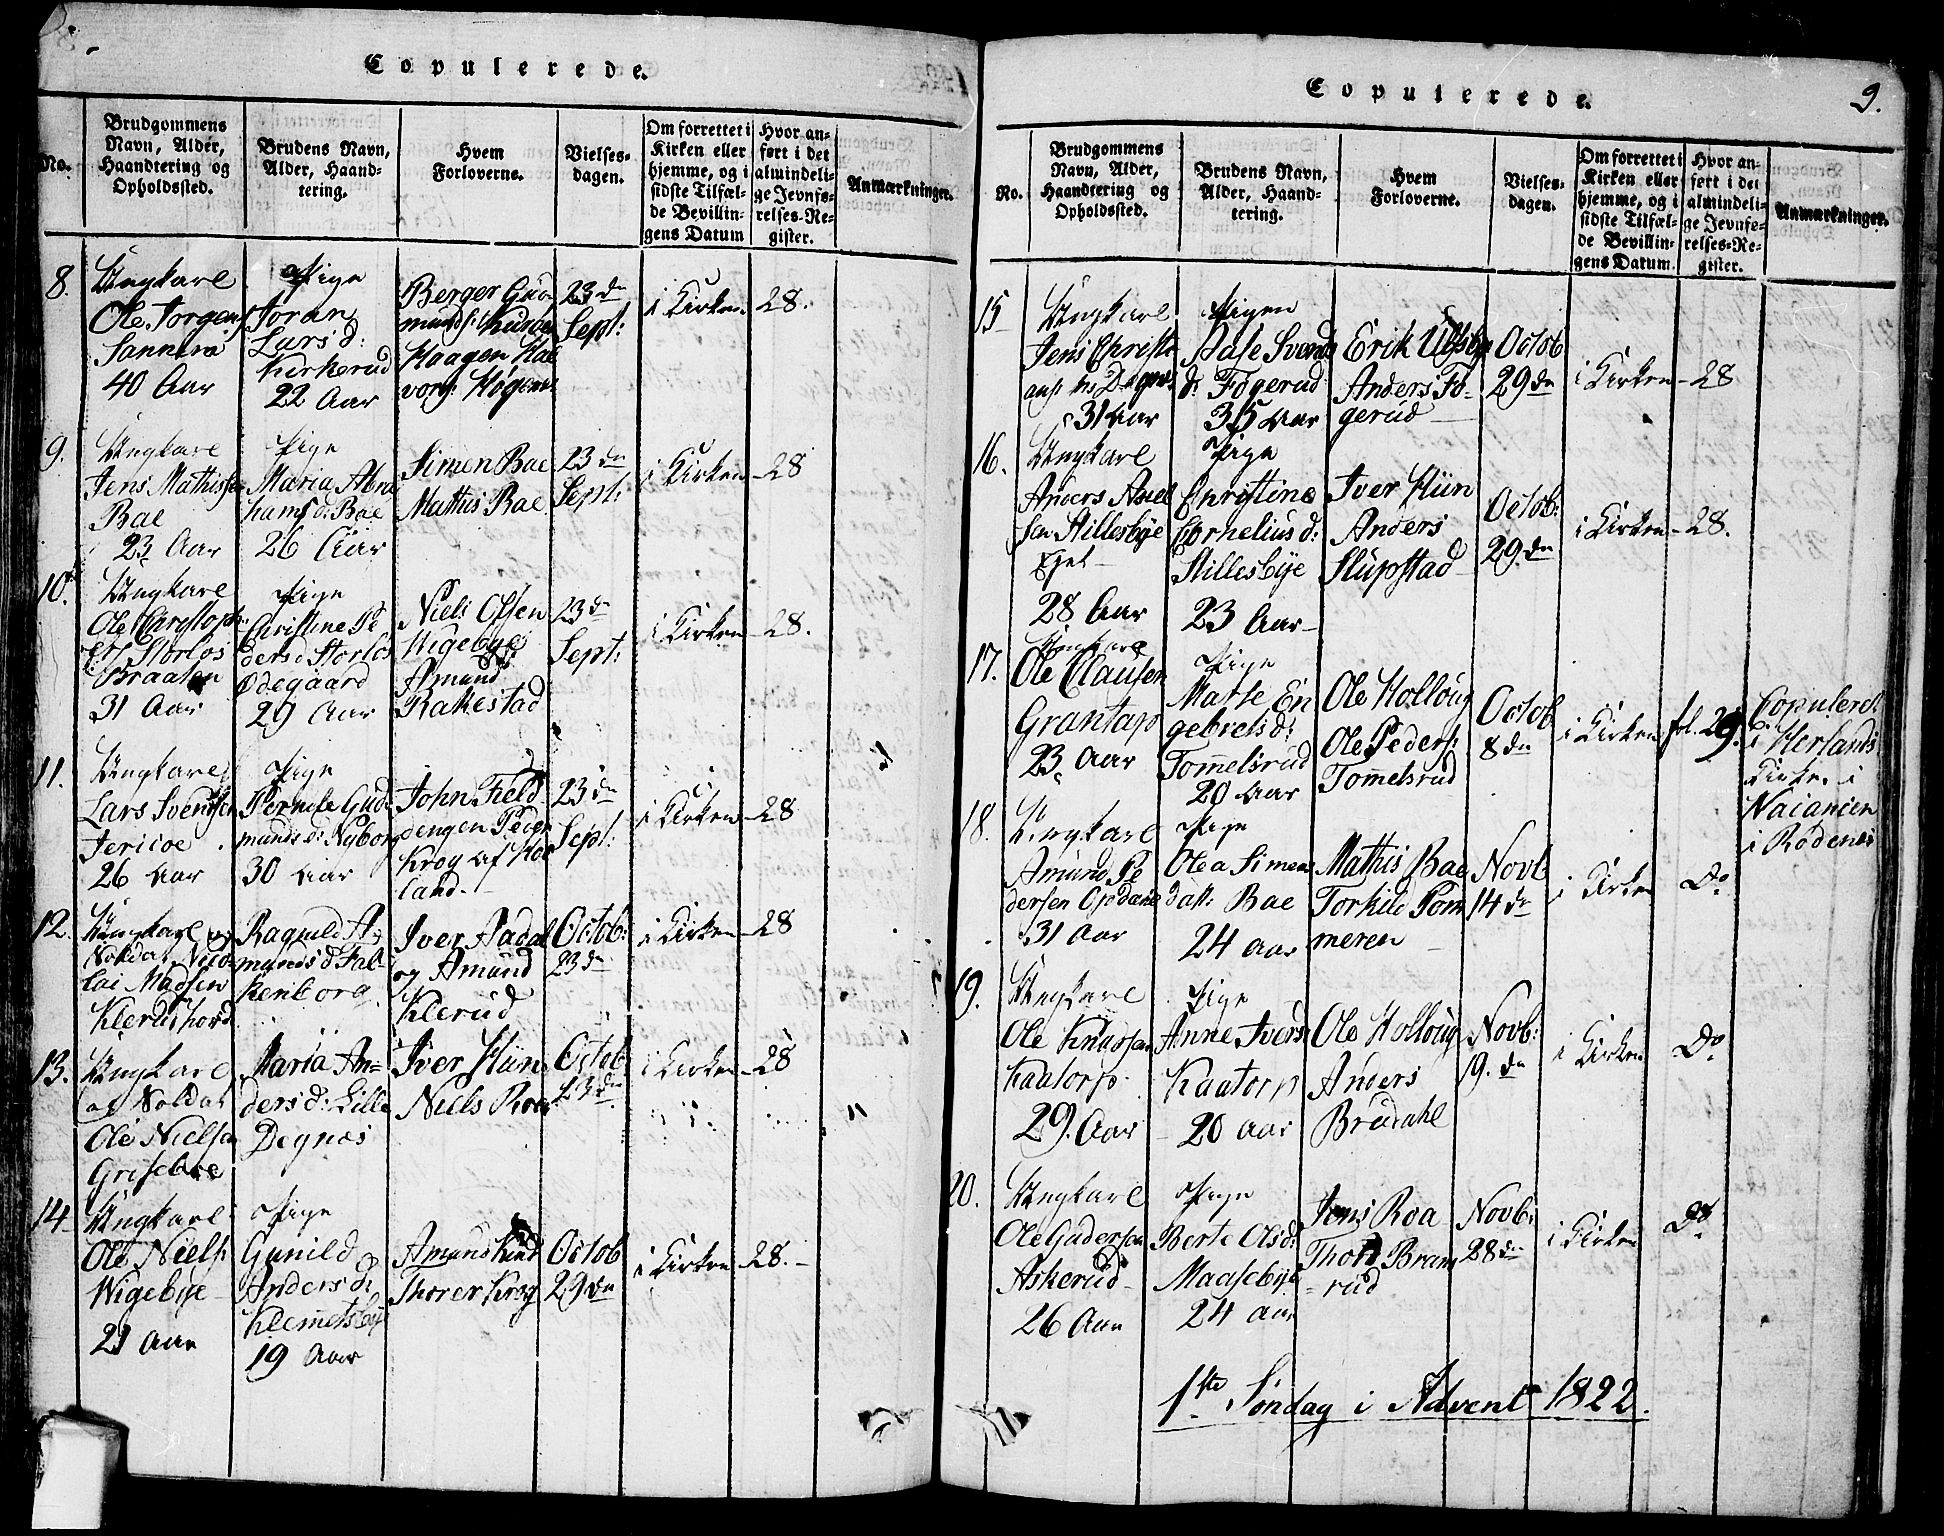 Copulerede.
No.
Brudgommens
Navn, Alder,
Haandtering og
Opholdssted.
Brudens Navn,
Alder, Haand-
tering.
Hvem
Forloverne.
Vielses-
dagen.
Om forrettet i
Kirken eller
hjemme, og i
sidste Tilfæl-
de Bevillin-
gens Datum
Hvor an-
ført i det
almindeli-
ge Jevnfø-
relses-Re-
gister.
Anmærkninger.
8.
Ungkarl
Ole Jorgens
40 Aar
Pige
Joran
Lars d:
Kirkerud
22 Aar
Berger Gud-
munds:
Haagen Hal
vors:
23 de
Sept:
i Kirken
28.
9.
Ungkarl
Jens Mathissen
Bae
23 Aar
Pige
Maria Abra
hams d: Bae
26 Aar
Simen Bae
Mathis Bae
23 de
Sept:
i Kirken
28
10.
Ungkarl
Ole Christoph
Storlos
Braaten
31 Aar
Pige
Christine Pe
ders: Storlos
Ødegaard
29 Aar
Niels Olsen
Wigebye
Amund
Rakestad
23 de
Sept:
i Kirken
28.
11.
Ungkarl
Lars Svendsen
Jericoe
26 Aar
Pige
Pernile Gud-
munds d: Nyborg
30 Aar
John Field
dengen
Krog af Høe
land.
23 de
Sept:
i Kirken
28
12.
Ungkarl og
Soldat Nico-
lai Madsen
Klerud
Ragnild A-
munds d Fal-
kenborg
Iver Aadal
og Amund
Klerud
Octob:
23 de
i Kirken
28
13.
Ungkarl
og Soldat
Ole Nielsen
Grisebøe
Maria An-
ders d: Lille
Degnes
Iver Hün
Niels Roa
Octob
23 de
i Kirken
28
14
Ungkarl
Ole Niels:
Wigebye
21 Aar
Pige
Gunild
Anders d:
Klemetsbye
19 Aar
Amund
Thorer Krog
Octob
29 de
i Kirken
28.
Copulerede.
9.
No.
Brudgommens
Navn, Alder,
Haandtering og
Opholdssted.
Brudens Navn,
Alder, Haand-
tering.
Hvem
Forloverne.
Vielses-
dagen.
Om forrettet i
Kirken eller
hjemme, og i
sidste Tilfæl-
de Bevillin-
gens Datum.
Hvor an-
ført i det
almindeli-
ge Jevnfø-
relses-Re-
gister.
Anmærkninger.
15
Ungkarl
Jens Christi
31 Aar
Pigen
Aase Svends
d: Fogerud
35 Aar
Erik Ulsbye
Anders Fo-
gerud
Octob
29 de
i Kirken
28
16.
Ungkarl
Anders Axel
sen Stillesbye
28 Aar
Pige
Christine
Cornelius d:
Stillesbye
23 Aar
Iver Hün
Anders
Slupstad
Octob:
29. de
i Kirken
28.
17.
Ungkarl
Ole Clausen
Grantap
23 Aar
Pige
Marte En
gebrets d:
Tommelsrud
20 Aar
Ole Holloug
Ole Peders:
Tommelsrud
Octob
8 de
i Kirken
fol. 29.
Copuleret
i Herlands
Kirke i
i Rødenes
18
Ungkarl
Amund Pe
dersen Opdahl
31 Aar
Pige
Olea Simens
datt: Bae
24 Aar
Mathis Bae
Torkild Tom
meren
Novb
14 de
i Kirken
Do
19.
Ungkarl
Ole Knudsen
Kaatorp
29. Aar
Pige
Anne Ivers
Kaatorp
20 Aar
Ole Holloug
Anders
Brudahl
Novb:
19. de
i Kirken
Do
20.
Ungkarl
Ole Gudersen
Askerud
26 Aar
Pige
Berte Olsd:
Maasebye
24 Aar
Jens Roa
Thore Bram
-rud
Novb:
28 de
i Kirken
Do
1ste Søndag i Advent 1822.